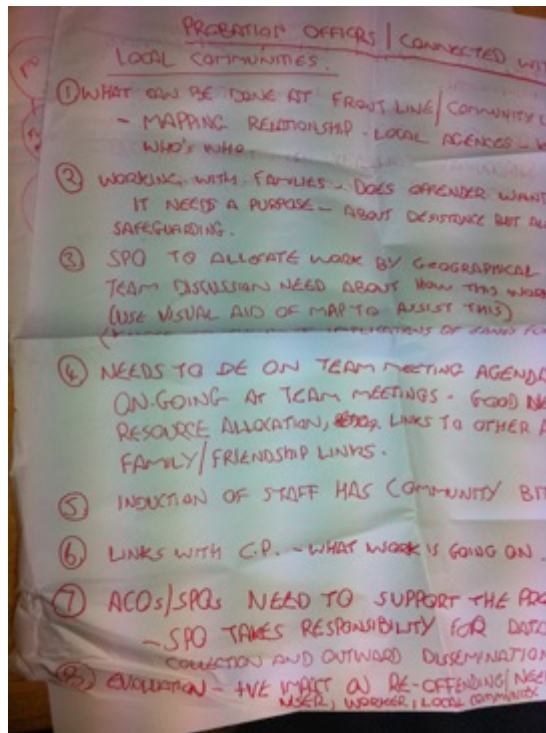 PROBATION OFFICRS / CONNECTED WIT
LOCAL COMMUNITIES.
① WHAT CAN BE DONE AT FRONT LINE / COMMUNITY L
- MAPPING RELATIONSHIP - LOCAL AGENCES -
WHO'S WHO
② WORKING WITH FAMILIES - DOES OFFENDER WANT
IT NEEDS A PURPOSE - ABOUT DESISTANCE BUT AL
SAFEGUARDING.
③ SPO TO ALLOCATE WORK BY GEOGRAPHICAL
TEAM DISCUSSION NEED ABOUT HOW THIS WOR
(USE VISUAL AID OF MAP TO ASSIST THIS)
IMPLICATIONS OF
④ NEEDS TO BE ON TEAM MEETING AGENDA
ON-GOING AT TEAM MEETINGS - GOOD NE
RESOURCE ALLOCATION, LINKS TO OTHER A
FAMILY/FRIENDSHIP LINKS.
⑤ INDUCTION OF STAFF HAS COMMUNITY BIT
⑥ LINKS WITH C.P. - WHAT WORK IS GOING ON.
⑦ ACOs/SPOs NEED TO SUPPORT THE PRO
- SPO TAKES RESPONSIBILITY FOR DATA
COLLECTION AND OUTWARD DISSEMINATION
⑧ EVALUATION - +VE IMPACT ON RE-OFFENDING/NEE
USER, WORKER, LOCAL COMMUNITY